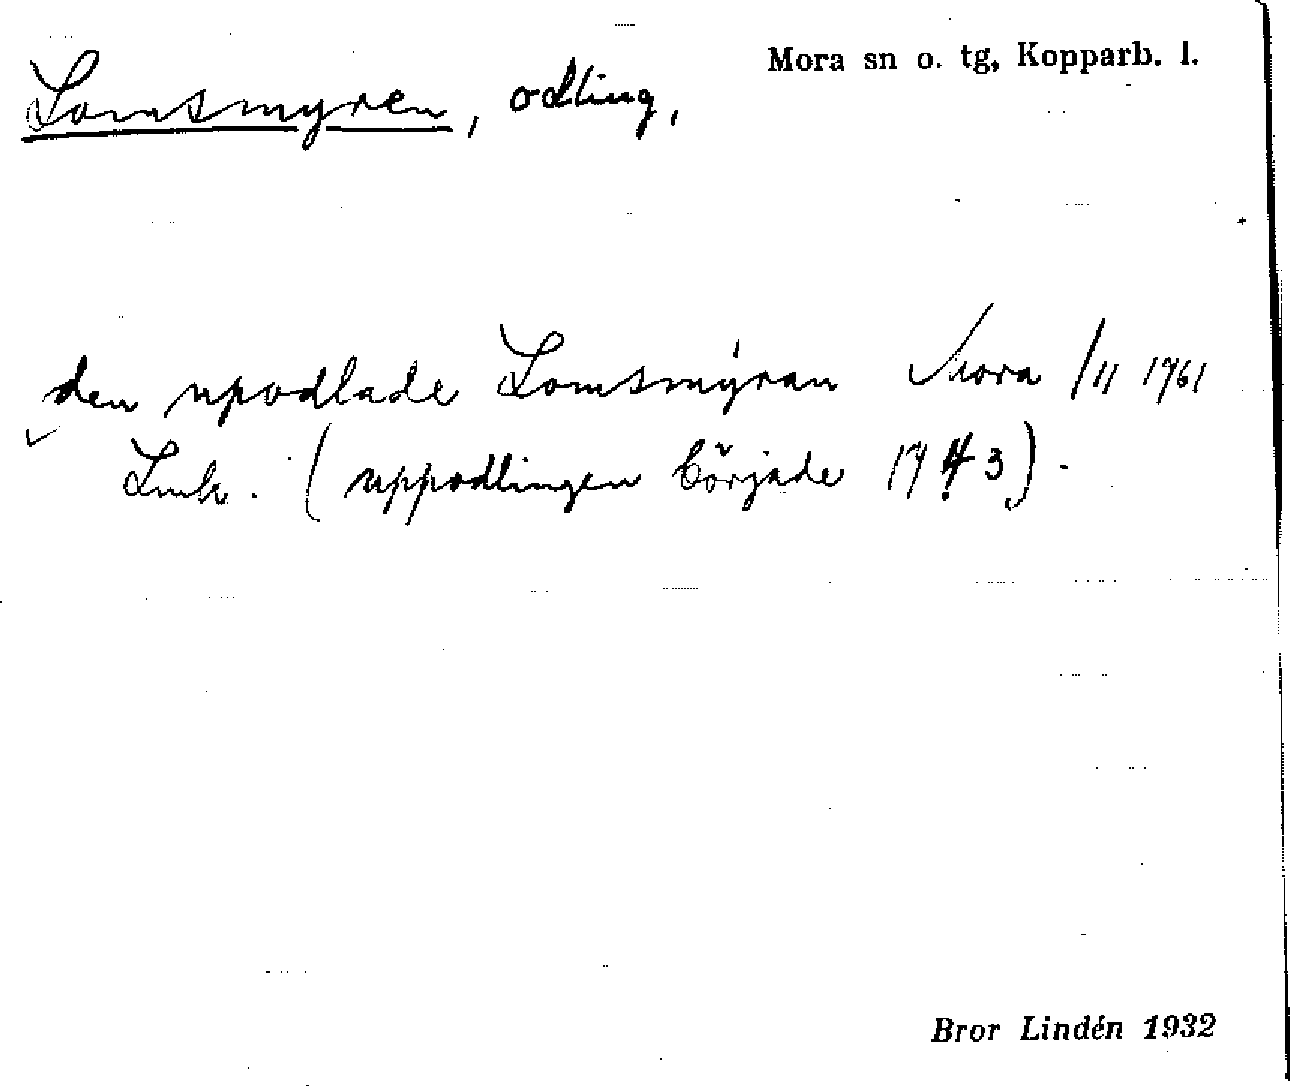 Mora sn o. tg, Kopparb. l.
Lomsmyren, odling,
den upodlade Lomsmyran Mora /11 1761
Lmk. (uppodlingen började 1743).
Bror Lindén 1932